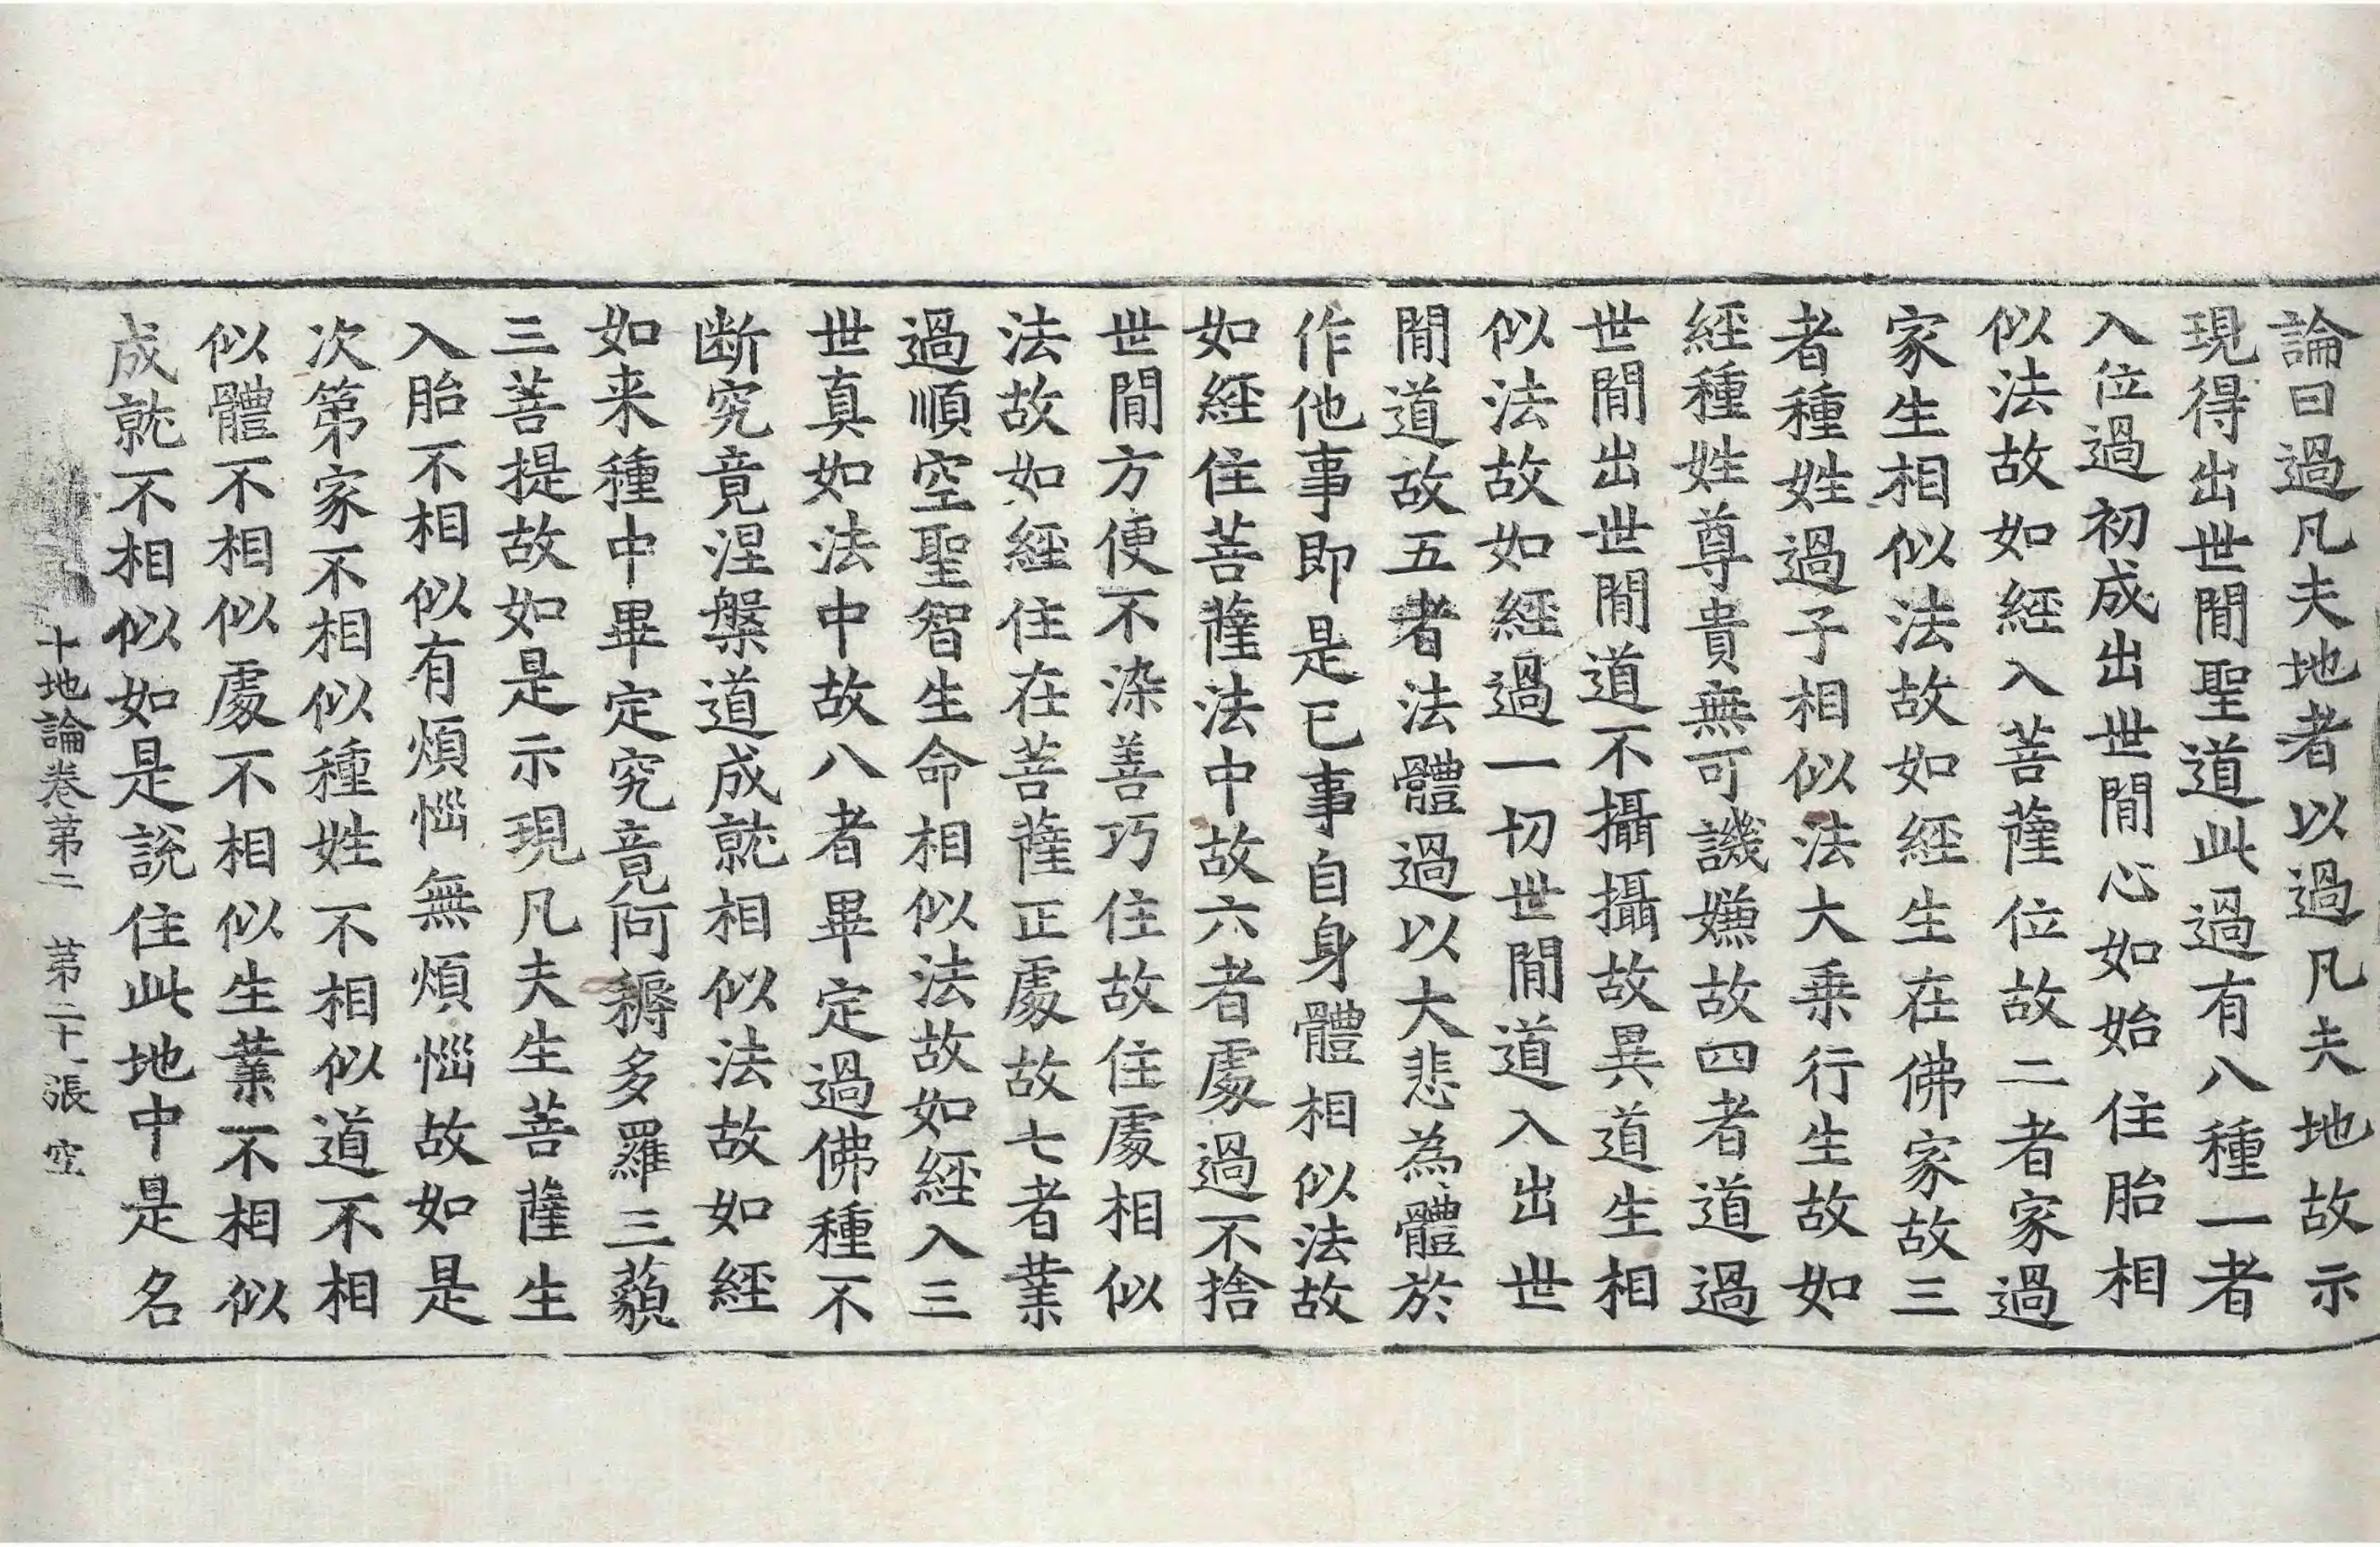 論曰過凡夫地者以過凡夫地故示
現得出世間聖道此過有八種一者
入位過初成出世間心如始住胎相
似法故如經入菩薩位故二者家過
家生相似法故如經生在佛家故三
者種姓過子相似法大乘行生故如
經種姓尊貴無可譏嫌故四者道過
世間出世間道不攝攝故異道生相
似法故如經過一切世間道入出世
間道故五者法體過以大悲為體於
作他事即是己事自身體相似法故
如經住菩薩法中故六者處過不捨
世間方便不染善巧住故住處相似
法故如經住在菩薩正處故七者業
過順空聖智生命相似法故如經入三
世真如法中故八者畢定過佛種不
断究竟涅槃道成就相似法故如經
如来種中畢定究竟阿耨多羅三藐
三菩提故如是示現凡夫生菩薩生
入胎不相似有煩惱無煩惱故如是
次第家不相似種姓不相似道不相
似體不相似處不相似生業不相似
成就不相似如是說住此地中是名
十地論卷第二 第二十一張 空